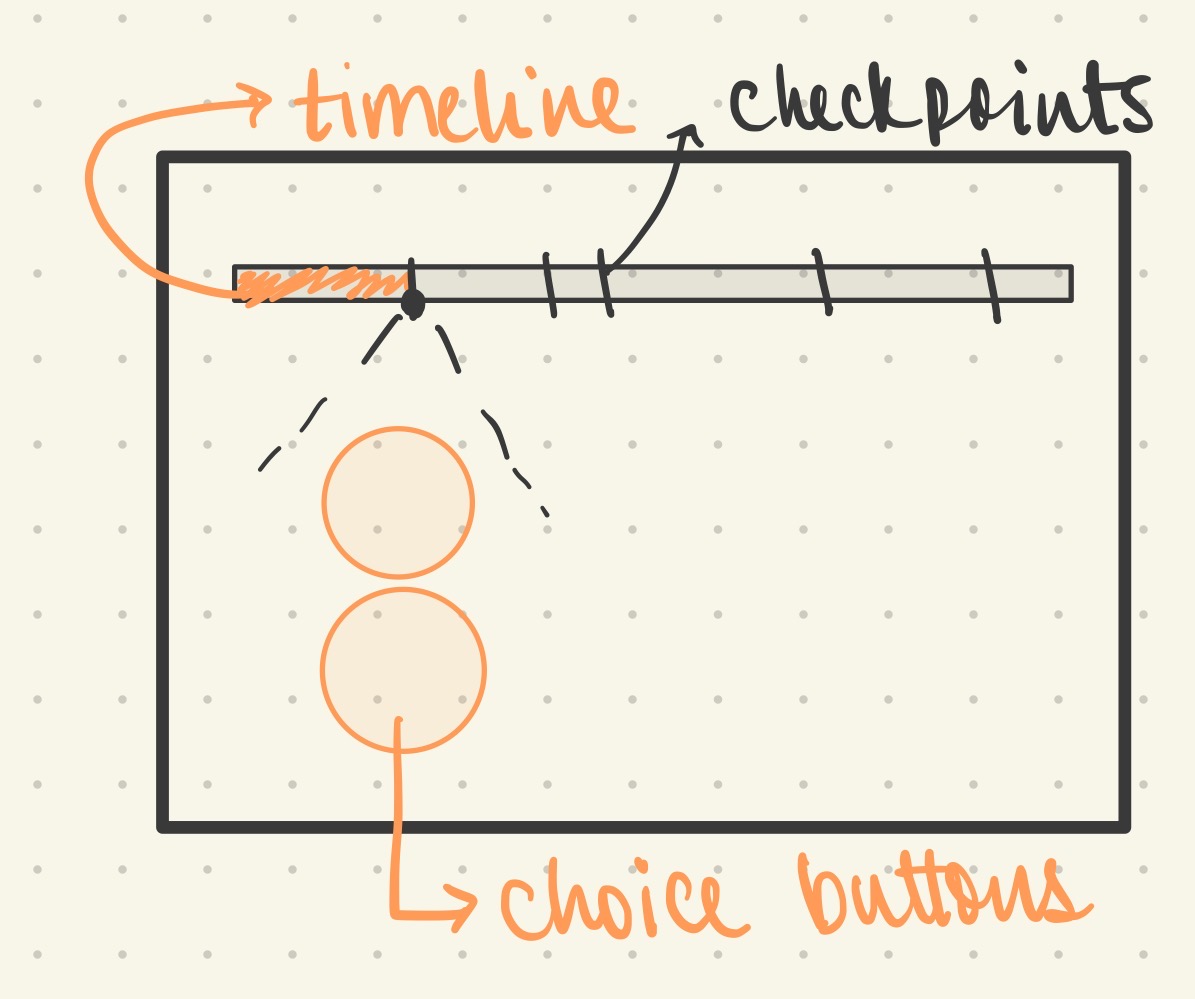 timeline
checkpoints
choice buttons